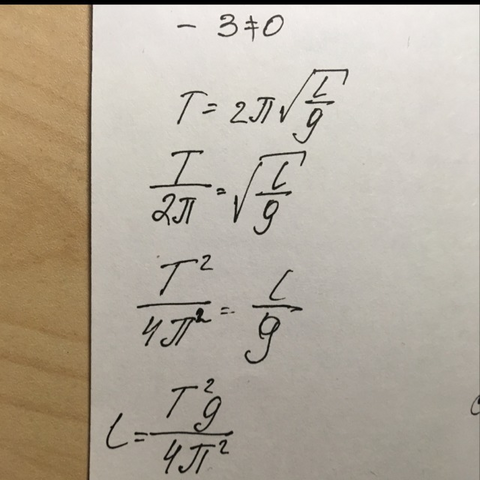 - 3≠0
T = 2π√(l/g)
T/2π = √(l/g)
T²/4π² = l/g
l = T²g/4π²